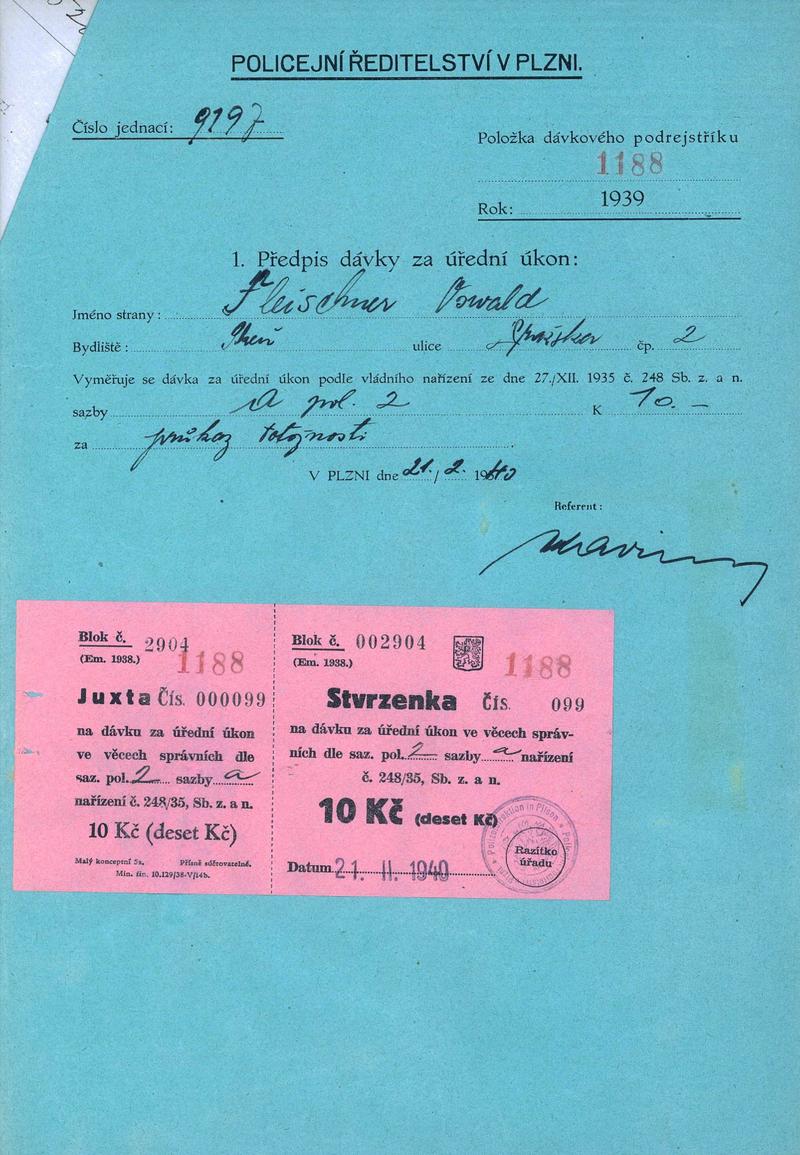 POLICEJNÍ ŘEDITELSTVÍ V PLZNI.
Číslo jednací: 9197
Položka dávkového podrejstříku
1188
Rok: 1939
1. Předpis dávky za úřední úkon:
Jméno strany: Fleischner Oswald
Bydliště: Plzeň ulice Pražská čp. 2
Vyměřuje se dávka za úřední úkon podle vládního nařízení ze dne 27./XII. 1935 č. 248 Sb. z. a n.
sazby A pol. 2 K 10.-
za průkaz totožnosti
V PLZNI dne 21./2. 1940
Referent:
Blok č. 2904
(Em. 1938.)
1188
Juxta Čís. 000099
na dávku za úřední úkon
ve věcech správních dle
saz. pol. 2 sazby a
nařízení č. 248/35, Sb. z. a n.
10 Kč (deset Kč)
Malý konceptní 5a. Přísně súčtovatelné.
Min. fin. 10.129/38-V/14b.
Blok č. 002904
(Em. 1938.)
1188
Stvrzenka Čís. 099
na dávku za úřední úkon ve věcech správ-
ních dle saz. pol. 2 sazby a nařízení
č. 248/35, Sb. z. a n.
10 Kč (deset Kč)
Datum 21. II. 1940
Polizeidirektion in Pilsen
Razítko
úřadu